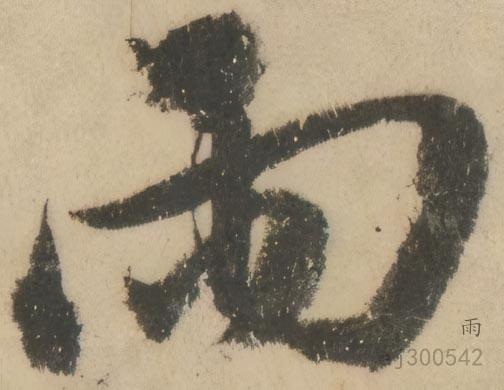 雨
雨
zj300542